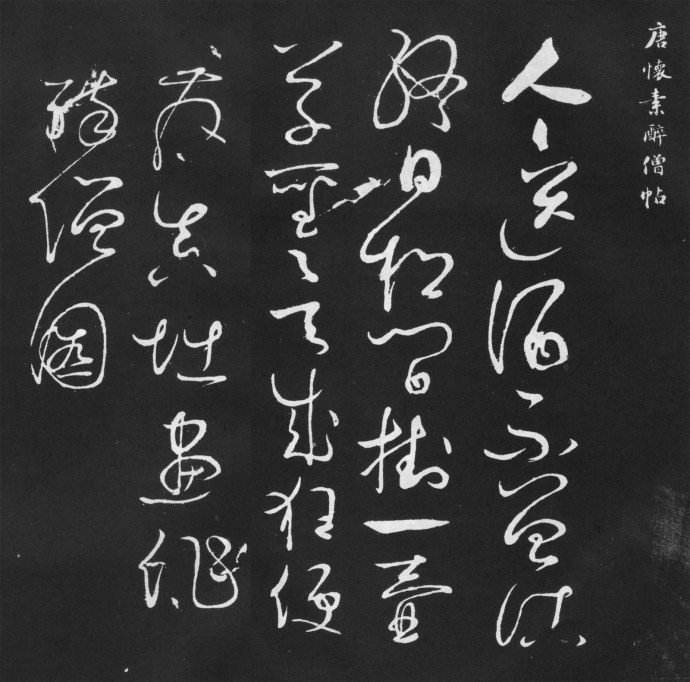 唐懷素醉僧帖
人人送酒不曾沽
終日松間掛一壺
草聖欲成狂便
發真堪畫
醉僧圖